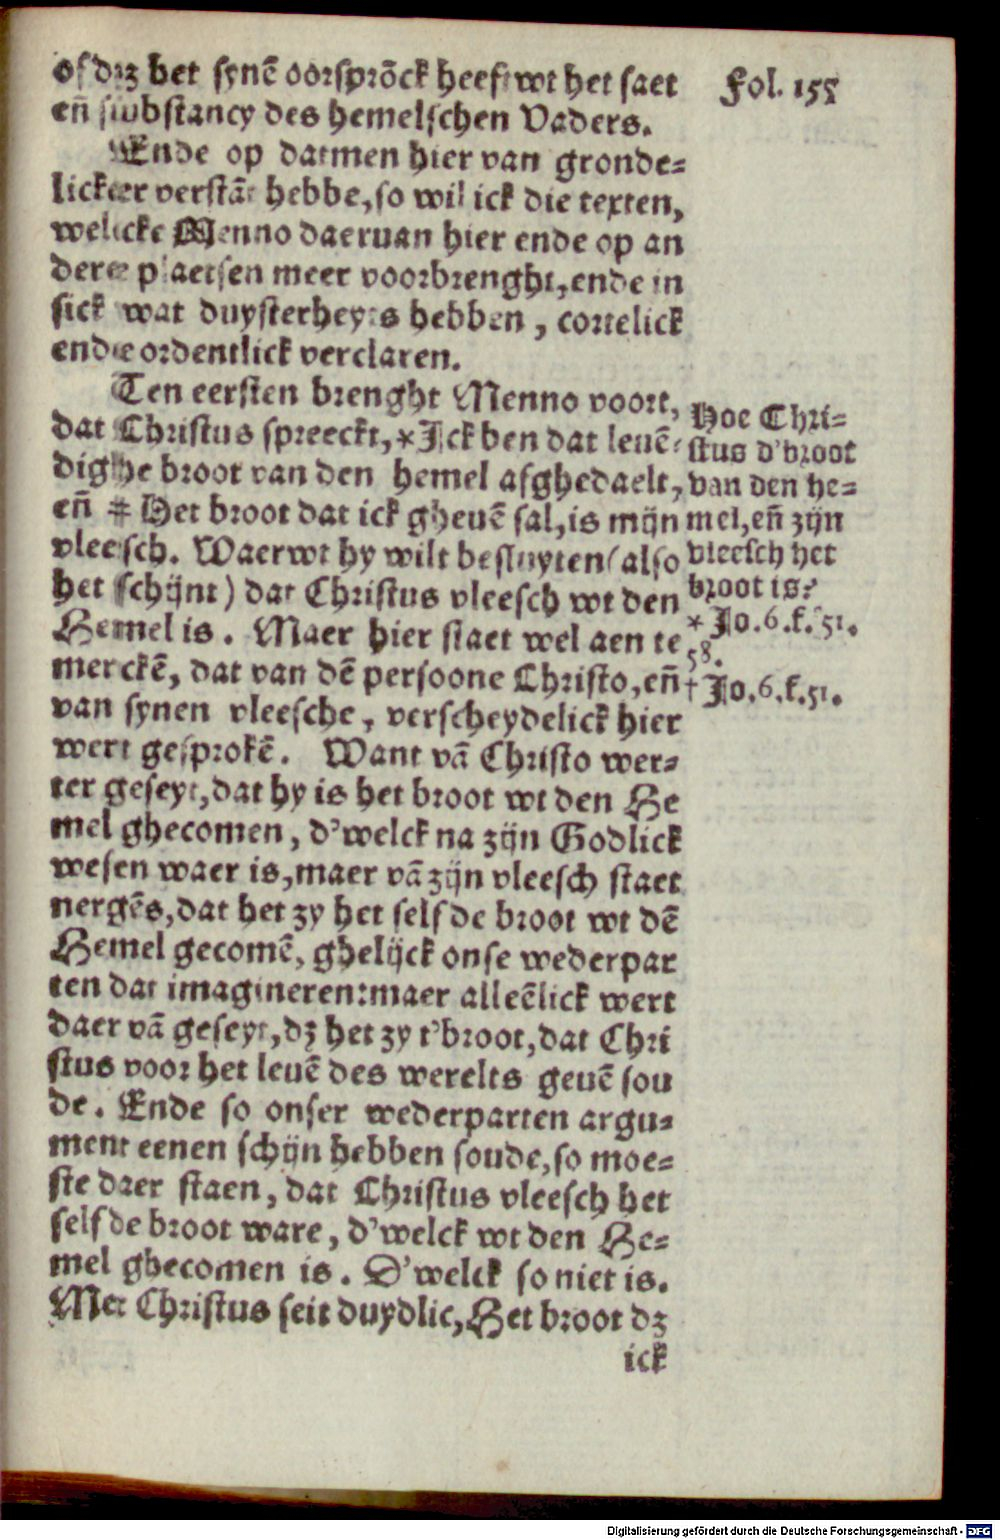 Fol. 155
of dʒ het synē oorsprōck heeft wt het saet
en̄ substancy des hemelschen Vaders.
Ende op datmen hier van gronde=
licker verstāt hebbe, so wil ick die texten,
welcke Menno daeruan hier ende op an
dere plaetsen meer voorbrenght, ende in
sick wat duysterheyts hebben, cortelick
ende ordentlick verclaren.
Ten eersten brenght Menno voort,
dat Christus spreeckt, *Ick ben dat leuē=
dighe broot van den hemel afghedaelt,
en̄ ⌗ Het broot dat ick gheuē sal, is mijn
vleesch. Waerwt hy wilt besluyten (also
het schijnt) dat Christus vleesch wt den
Hemel is. Maer hier staet wel aen te
merckē, dat van dē persoone Christo, en̄
van synen vleesche, verscheydelick hier
wert gesprokē. Want vā Christo wer=
ter geseyt, dat hy is het broot wt den He
mel ghecomen, d'welck na zijn Godlick
wesen waer is, maer vā zijn vleesch staet
nergēs, dat het zy het selfde broot wt dē
Hemel gecomē, ghelijck onse wederpar
ten dat imagineren: maer alleēlick wert
daer vā geseyt, dʒ het zy t'broot, dat Chri
stus voor het leuē des werelts geuē sou
de. Ende so onser wederparten argu=
ment eenen schijn hebben soude, so moe=
ste daer staen, dat Christus vleesch het
selfde broot ware, d'welck wt den He=
mel ghecomen is. D'welck so niet is.
Met Christus seit duydlic, Het broot dʒ
ick
Hoe Chri=
stus d'broot
van den he=
mel, en̄ zijn
vleesch het
broot is?
* Jo. 6. f. 51.
58.
† Jo. 6. f. 51.
Digitalisierung gefördert durch die Deutsche Forschungsgemeinschaft - DFG